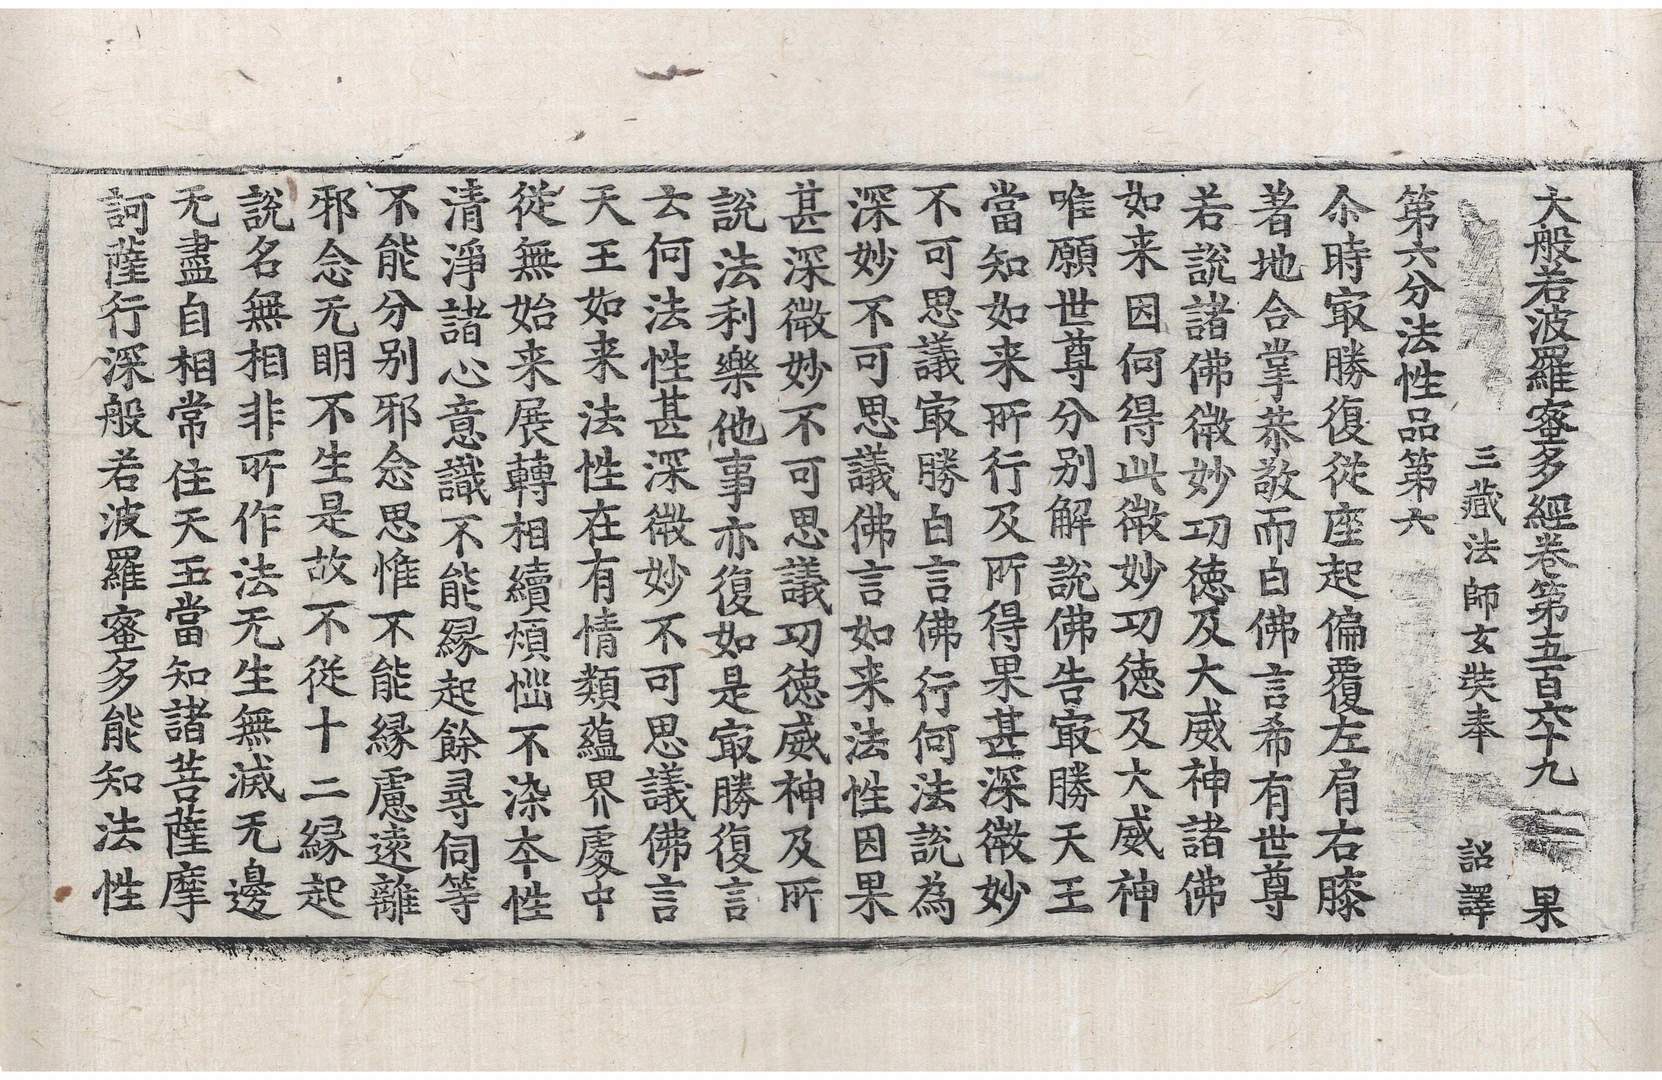 大般若波羅蜜多經卷第五百六十九 果
三藏法師玄奘奉 詔譯
第六分法性品第六
尒時㝡勝復從座起偏覆左肩右膝
著地合掌恭敬而白佛言希有世尊
若說諸佛微妙功徳及大威神諸佛
如来因何得此微妙功徳及大威神
唯願世尊分別解說佛告㝡勝天王
當知如来所行及所得果甚深微妙
不可思議㝡勝白言佛行何法說為
深妙不可思議佛言如来法性因果
甚深微妙不可思議功徳威神及所
說法利樂他事亦復如是㝡勝復言
云何法性甚深微妙不可思議佛言
天王如来法性在有情類蘊界處中
從無始来展轉相續煩惱不染夲性
清淨諸心意識不能縁起餘尋伺等
不能分別邪念思惟不能縁慮遠離
邪念无明不生是故不從十二縁起
說名無相非所作法无生無滅无邊
无盡自相常住天王當知諸菩薩摩
訶薩行深般若波羅蜜多能知法性